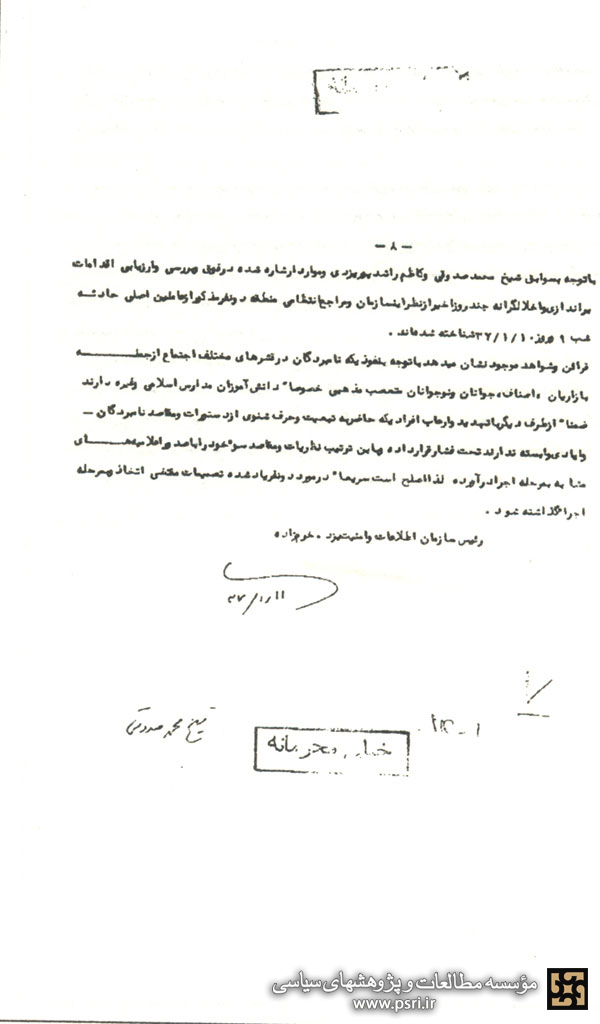 - ۸ -
باتوجه بسوابق شیخ محمد صدوقی وکاظم راشدپوریزدی وموارد اشاره شده درفوق وبررسی وارزیابی اقدامات
براندازی واخلالگرانه چندروزاخیر ازنظر اینسازمان ومراجع انتظامی منطقه دونفرمذکور ازعاملین اصلی حادثه
شب ۹ وروز ۳۷/۱/۱۰ شناخته شده‌اند .
قرائن وشواهد موجود نشان میدهد باتوجه بنفوذیکه نامبردگان درقشرهای مختلف اجتماع ازجمله
بازاریان ، اصناف ، جوانان ونوجوانان متعصب مذهبی خصوصا" دانش‌آموزان مدارس اسلامی وغیره دارند
ضمنا" ازطرف دیگر باتهدید وارعاب افرادیکه حاضر به تبعیت وحرف شنوی ازدستورات ومقاصد نامبردگان -
ویا ایادی وابسته ندارند تحت فشار قرارداده وباین ترتیب نظریات ومقاصد سوء خود را باصدور اعلامیه‌های
به مرحله اجرا درآورده لذا اصلح است سریعا" درمورد دونفر یادشده تصمیمات مقتضی اتخاذ وبمرحله
اجراگذاشته شود .
رئیس سازمان اطلاعات وامنیت یزد .
شیخ محمد صدوقی
خیلی محرمانه
مؤسسه مطالعات و پژوهشهای سیاسی
www.psri.ir